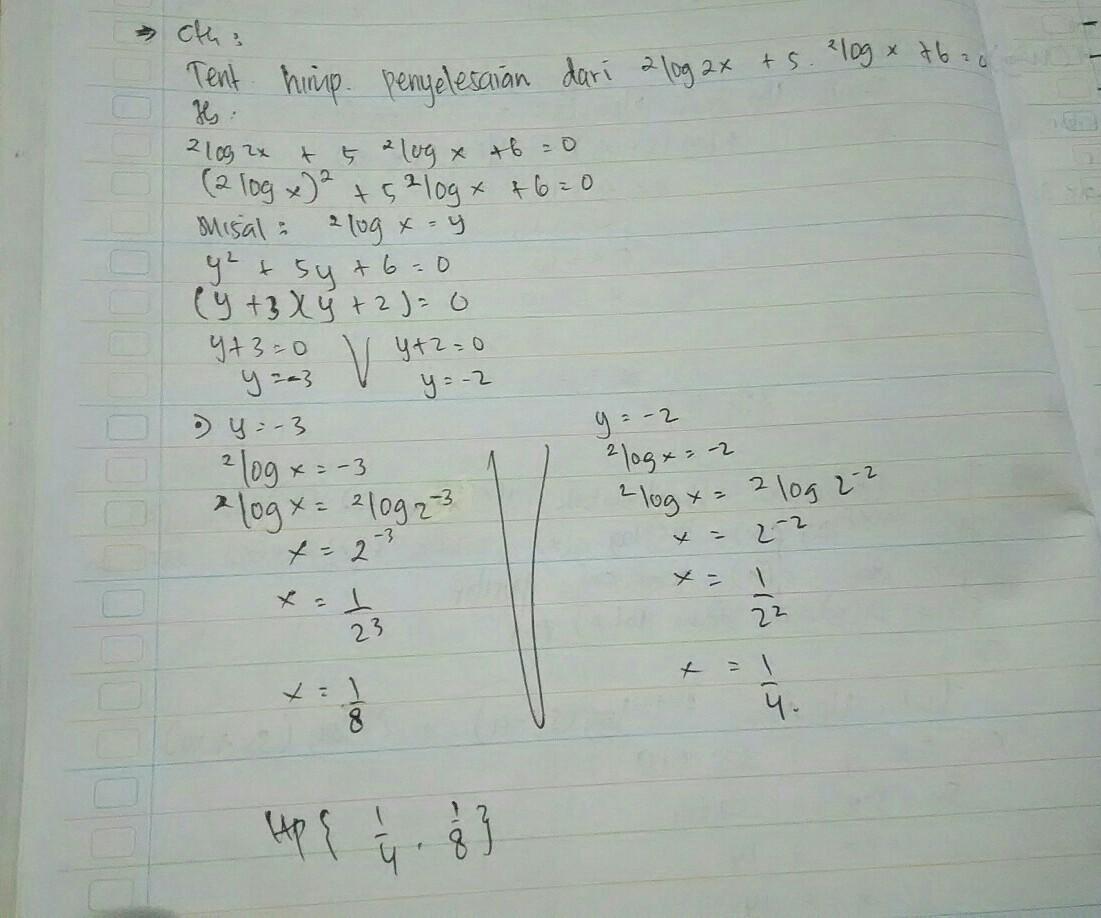 → Cth :
Tent. himp. penyelesaian dari ²log 2x + 5. ²log x + 6 = 0
Jb :
²log 2x + 5 ²log x + 6 = 0
(²log x)² + 5 ²log x + 6 = 0
Misal : ²log x = y
y² + 5y + 6 = 0
(y + 3)(y + 2) = 0
y + 3 = 0 V y + 2 = 0
y = -3 y = -2
•) y = -3 y = -2
²log x = -3 ²log x = -2
²log x = ²log 2⁻³ ²log x = ²log 2⁻²
x = 2⁻³ x = 2⁻²
x = 1/2³ x = 1/2²
x = 1/8 x = 1/4.
HP { 1/4 , 1/8 }